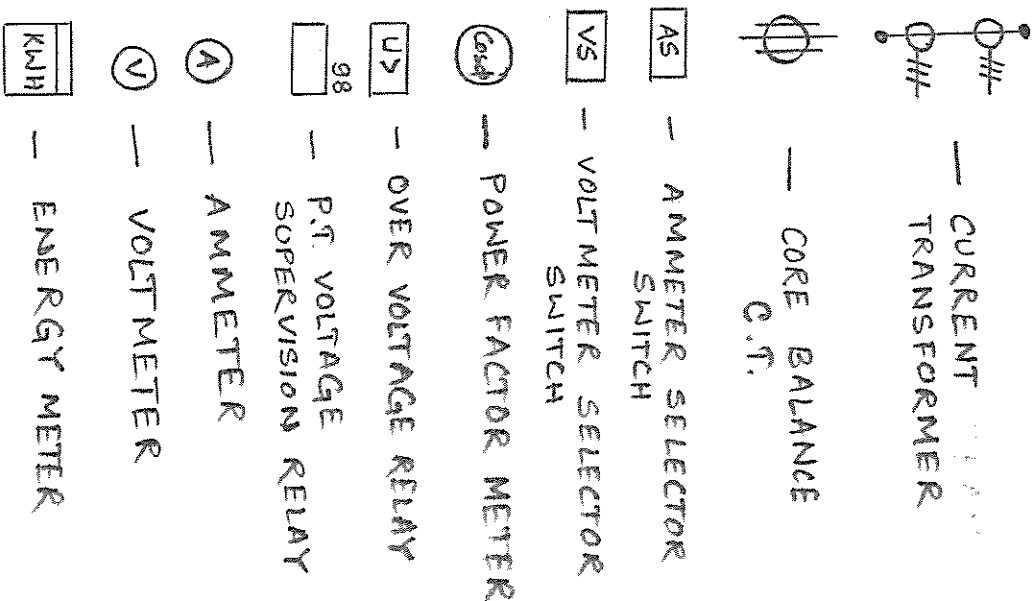 — CURRENT
TRANSFORMER
— CORE BALANCE
C.T.
AS — AMMETER SELECTOR
SWITCH
VS — VOLTMETER SELECTOR
SWITCH
Cosϕ — POWER FACTOR METER
U> — OVER VOLTAGE RELAY
98 — P.T. VOLTAGE
SUPERVISION RELAY
A — AMMETER
V — VOLTMETER
KWH — ENERGY METER